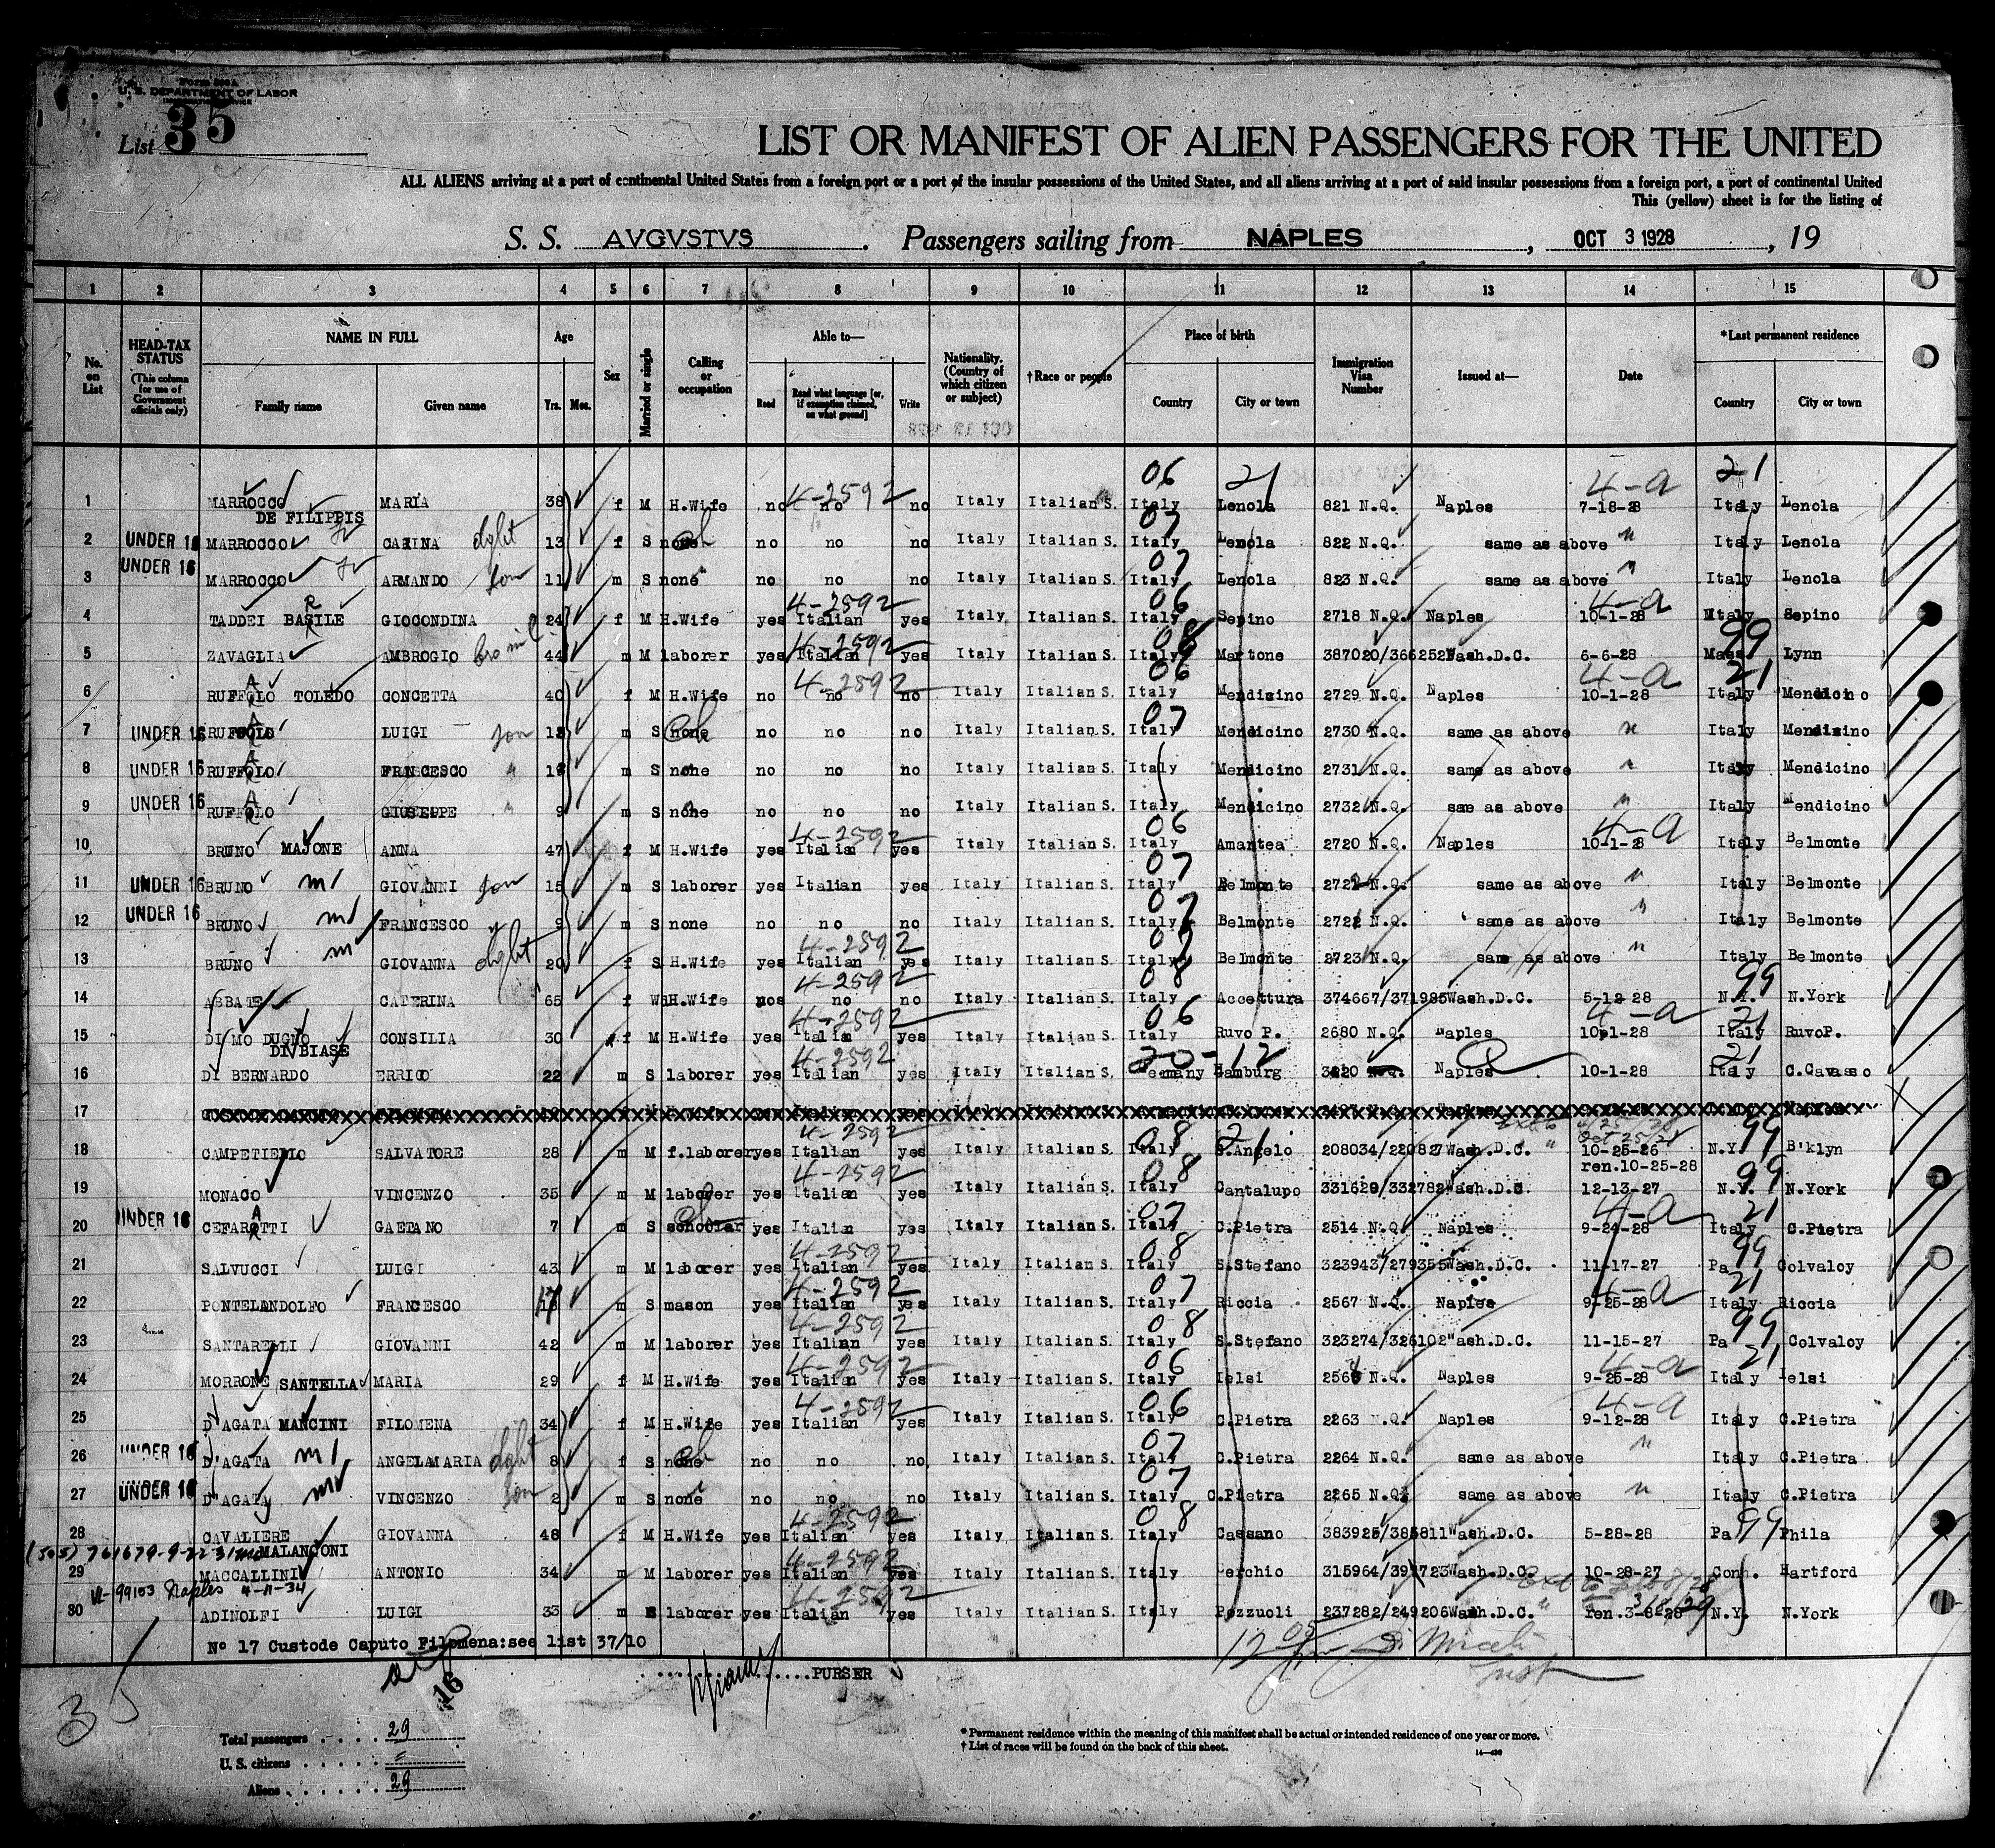 Form 500A
U. S. DEPARTMENT OF LABOR
IMMIGRATION SERVICE
List 35
LIST OR MANIFEST OF ALIEN PASSENGERS FOR THE UNITED
ALL ALIENS arriving at a port of continental United States from a foreign port or a port of the insular possessions of the United States, and all aliens arriving at a port of said insular possessions from a foreign port, a port of continental United
This (yellow) sheet is for the listing of
S. S. AVGVSTVS. Passengers sailing from NAPLES, OCT 3 1928, 19
1 2 3 4 5 6 7 8 9 10 11 12 13 14 15
No. on List
HEAD-TAX STATUS
(This column for use of Government officials only)
NAME IN FULL
Family name
Given name
Age
Yrs. Mos.
Sex
Married or single
Calling or occupation
Able to—
Read
Read what language [or, if exemption claimed, on what ground]
Write
Nationality. (Country of which citizen or subject)
†Race or people
Place of birth
Country
City or town
Immigration Visa Number
Issued at—
Date
*Last permanent residence
Country
City or town
06 21 4-a 21
1 MARROCCO MARIA 38 f M H.Wife no 4-2592 no no Italy Italian S. Italy Lenola 821 N.Q. Naples 7-18-28 Italy Lenola
DE FILIPPIS
2 UNDER 16 MARROCCO CARINA dght 13 f S none no no no Italy Italian S. 07 Italy Lenola 822 N.Q. same as above " Italy Lenola
3 UNDER 16 MARROCCO ARMANDO son 11 m S none no no no Italy Italian S. 07 Italy Lenola 823 N.Q. same as above " Italy Lenola
4 TADDEI BASILE GIOCONDINA 24 f M H.Wife yes 4-2592 Italian yes Italy Italian S. 06 Italy Sepino 2718 N.Q. Naples 4-a 10-1-28 Italy Sepino
5 ZAVAGLIA AMBROGIO 44 m M laborer yes 4-2592 Italian yes Italy Italian S. 08 Italy Martone 387020/366252 Wash.D.C. 6-6-28 99 Mass Lynn
6 RUFFOLO TOLEDO CONCETTA 40 f M H.Wife no 4-2592 no no Italy Italian S. 06 Italy Mendisino 2729 N.Q. Naples 4-a 10-1-28 21 Italy Mendicino
7 UNDER 16 RUFFOLO LUIGI son m S none no no no Italy Italian S. 07 Italy Mendicino 2730 N.Q. same as above " Italy Mendisino
8 UNDER 16 RUFFOLO FRANCESCO " m S none no no no Italy Italian S. Italy Mendicino 2731 N.Q. same as above " Italy Mendicino
9 UNDER 16 RUFFOLO GIUSEPPE " 9 m S none no no no Italy Italian S. Italy Mendicino 2732 N.Q. sae as above " Italy Mendicino
10 BRUNO MAJONE ANNA 47 f M H.Wife yes 4-2592 Italian yes Italy Italian S. 06 Italy Amantea 2720 N.Q. Naples 4-a 10-1-28 Italy Belmonte
11 UNDER 16 BRUNO GIOVANNI son 15 m S laborer yes Italian yes Italy Italian S. 07 Italy Belmonte 2721 N.Q. same as above " Italy Belmonte
12 UNDER 16 BRUNO FRANCESCO 9 m S none no no no Italy Italian S. 07 Italy Belmonte 2722 N.Q. same as above " Italy Belmonte
13 BRUNO GIOVANNA dght 20 f S H.Wife yes 4-2592 Italian yes Italy Italian S. 07 Italy Belmonte 2723 N.Q. same as above " Italy Belmonte
14 ABBATE CATERINA 65 f Wd H.Wife no 4-2592 no no Italy Italian S. 08 Italy Accettura 374667/371985 Wash.D.C. 5-12-28 99 N.Y. N.York
15 DI MO DUGNO CONSILIA 30 f M H.Wife yes 4-2592 Italian yes Italy Italian S. 06 Italy Ruvo P. 2680 N.Q. Naples 4-a 10-1-28 21 Italy RuvoP.
DI BIASE
16 DI BERNARDO ERRICO 22 m S laborer yes 4-2592 Italian yes Italy Italian S. 20-12 Germany Hamburg 3420 N.Q. Naples 10-1-28 21 Italy C.Cavasso
17
18 CAMPETIELLO SALVATORE 28 m M f.laborer yes 4-2592 Italian yes Italy Italian S. 08 21 Italy S.Angelo 208034/220827 Wash.D.C. 10-25-26 99 N.Y. B'klyn
ren.10-25-28
19 MONACO VINCENZO 35 m M laborer yes 4-2592 Italian yes Italy Italian S. 08 Italy Cantalupo 331629/332782 Wash.D.C. 12-13-27 99 N.Y. N.York
20 UNDER 16 CEFAROTTI GAETANO 7 m S schoolar yes Italian yes Italy Italian S. 07 Italy C.Pietra 2514 N.Q. Naples 4-a 9-24-28 21 Italy C.Pietra
21 SALVUCCI LUIGI 43 m M laborer yes 4-2592 Italian yes Italy Italian S. 08 Italy S.Stefano 323943/279355 Wash.D.C. 11-17-27 99 Pa Colvaloy
22 PONTELANDOLFO FRANCESCO 17 m S mason yes 4-2592 Italian yes Italy Italian S. 07 Italy Riccia 2567 N.Q. Naples 4-a 9-25-28 21 Italy Riccia
23 SANTARELLI GIOVANNI 42 m M laborer yes 4-2592 Italian yes Italy Italian S. 08 Italy S.Stefano 323274/326102 Wash.D.C. 11-15-27 99 Pa Colvaloy
24 MORRONE SANTELLA MARIA 29 f M H.Wife yes 4-2592 Italian yes Italy Italian S. 06 Italy Ielsi N.Q. Naples 4-a 9-25-28 21 Italy Ielsi
25 D'AGATA MANCINI FILOMENA 34 f M H.Wife yes 4-2592 Italian yes Italy Italian S. 06 Italy C.Pietra 2263 N.Q. Naples 4-a 9-12-28 Italy C.Pietra
26 UNDER 16 D'AGATA ANGELAMARIA dght 8 f S none no no no Italy Italian S. 07 Italy C.Pietra 2264 N.Q. same as above " Italy C.Pietra
27 UNDER 16 D'AGATA VINCENZO son 2 m S none no no no Italy Italian S. 07 Italy C.Pietra 2265 N.Q. same as above " Italy C.Pietra
28 CAVALIERE GIOVANNA 48 f M H.Wife yes 4-2592 Italian yes Italy Italian S. 08 Italy Cassano Wash.D.C. 5-28-28 99 Pa Phila
MALANCONI
29 MACCALLINI ANTONIO 34 m M laborer yes 4-2592 Italian yes Italy Italian S. Italy Lerchio Wash.D.C. 10-28-27 Conn. Hartford
V-99153 Naples 4-11-34
30 ADINOLFI LUIGI 33 m laborer yes 4-2592 Italian yes Italy Italian S. Italy Pozzuoli 237282/249206 Wash.D.C. N.Y. N.York
No 17 Custode Caputo Filomena:see list 37/10
PURSER
16
35
Total passengers 29
U. S. citizens
Aliens 29
* Permanent residence within the meaning of this manifest shall be actual or intended residence of one year or more.
† List of races will be found on the back of this sheet.
14—430